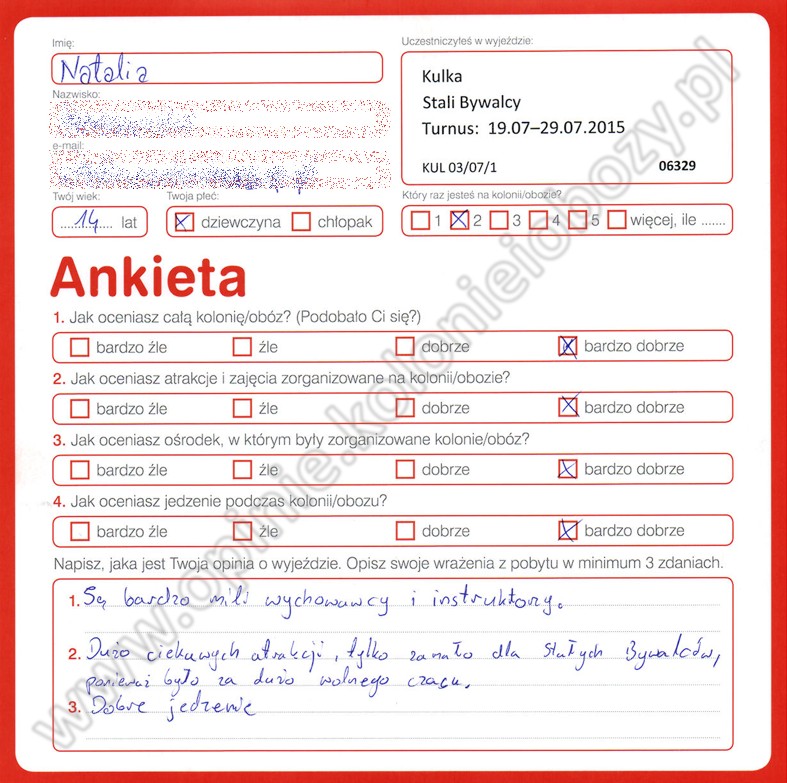 Imię:
Natalia
Nazwisko:
e-mail:
Twój wiek:
14 lat
Twoja płeć:
dziewczyna chłopak
Uczestniczyłeś w wyjeździe:
Kulka
Stali Bywalcy
Turnus: 19.07–29.07.2015
KUL 03/07/1 06329
Który raz jesteś na kolonii/obozie?
1 2 3 4 5 więcej, ile .......
Ankieta
1. Jak oceniasz całą kolonię/obóz? (Podobało Ci się?)
bardzo źle źle dobrze bardzo dobrze
2. Jak oceniasz atrakcje i zajęcia zorganizowane na kolonii/obozie?
bardzo źle źle dobrze bardzo dobrze
3. Jak oceniasz ośrodek, w którym były zorganizowane kolonie/obóz?
bardzo źle źle dobrze bardzo dobrze
4. Jak oceniasz jedzenie podczas kolonii/obozu?
bardzo źle źle dobrze bardzo dobrze
Napisz, jaka jest Twoja opinia o wyjeździe. Opisz swoje wrażenia z pobytu w minimum 3 zdaniach.
1. Są bardzo mili wychowawcy i instruktorzy.
2. Dużo ciekawych atrakcji, tylko za mało dla Stałych Bywalców,
ponieważ było za dużo wolnego czasu.
3. Dobre jedzenie
www.opinie.kolonieiobozy.pl